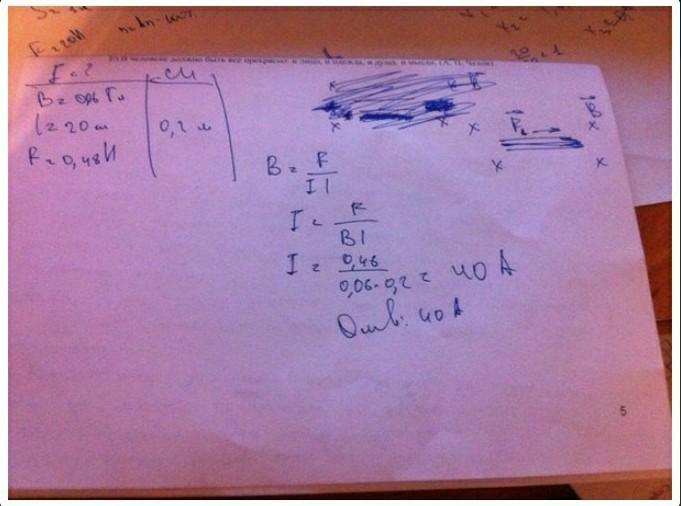 F = 20 H
20/2 = 1
В человеке должно быть всё прекрасно: и лицо, и одежда, и душа, и мысли. (А. П. Чехов)
I = ?
СИ
B = 0,06 Тл
l = 20 см
0,2 м
F = 0,48 H
B = F / I l
I = F / B l
I = 0,48 / 0,06·0,2 = 40 A
Отв: 40 A
B
5